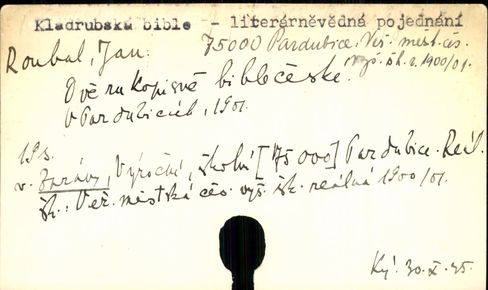 Kladrubská bible - literárněvědná pojednání
75000 Pardubice. Vyš. měst. čes.
Roubal, Jan:
vyš. šk. r. 1900/01.
Dvě rukopisné bible české.
V Pardubicích, 1901.
19 s.
v. Zprávy, Výroční, školní [75000] Pardubice. Reál.
šk.: Veř. městská čes. vyš. šk. reálná 1900/01.
Ký. 30.X.35.